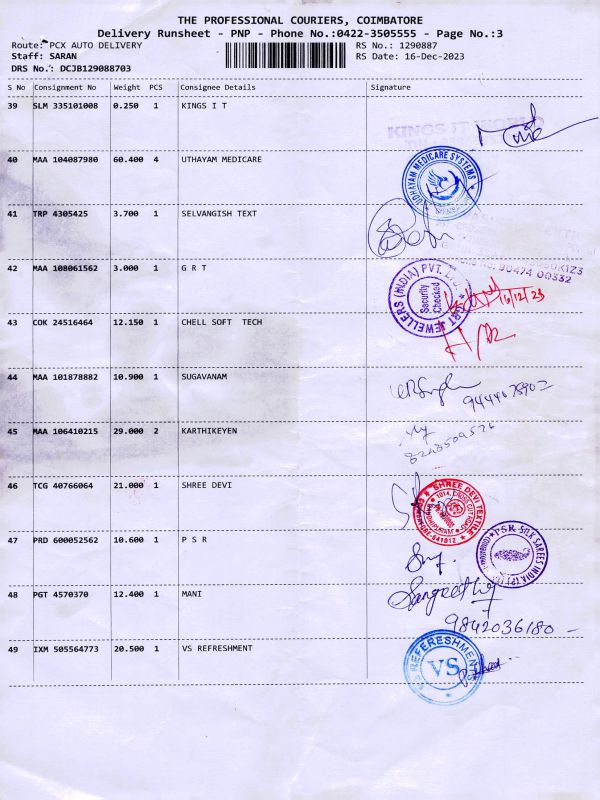 THE PROFESSIONAL COURIERS, COIMBATORE
Delivery Runsheet - PNP - Phone No.:0422-3505555 - Page No.:3
Route: PCX AUTO DELIVERY RS No.: 1290887
Staff: SARAN RS Date: 16-Dec-2023
DRS No.: DCJB129088703
S No Consignment No Weight PCS Consignee Details Signature
39 SLM 335101008 0.250 1 KINGS I T
KINGS IT WORLD
40 MAA 104087980 60.400 4 UTHAYAM MEDICARE
UDHAYAM MEDICARE SYSTEMS
41 TRP 4305425 3.700 1 SELVANGISH TEXT
42 MAA 108061562 3.000 1 G R T
00474 00332
GRT JEWELLERS (INDIA) PVT. LTD.
Security Checked
16/12/23
43 COK 24516464 12.150 1 CHELL SOFT TECH
44 MAA 101878882 10.900 1 SUGAVANAM
45 MAA 106410215 29.000 2 KARTHIKEYEN
46 TCG 40766064 21.000 1 SHREE DEVI
SHREE DEVI TEXTILE
COIMBATORE-641012
47 PRD 600052562 10.600 1 P S R
P.S.R. SILK SAREES INDIA (P) LTD
48 PGT 4570370 12.400 1 MANI
9842036180
49 IXM 505564773 20.500 1 VS REFRESHMENT
VS REFERESHMENTS
VS